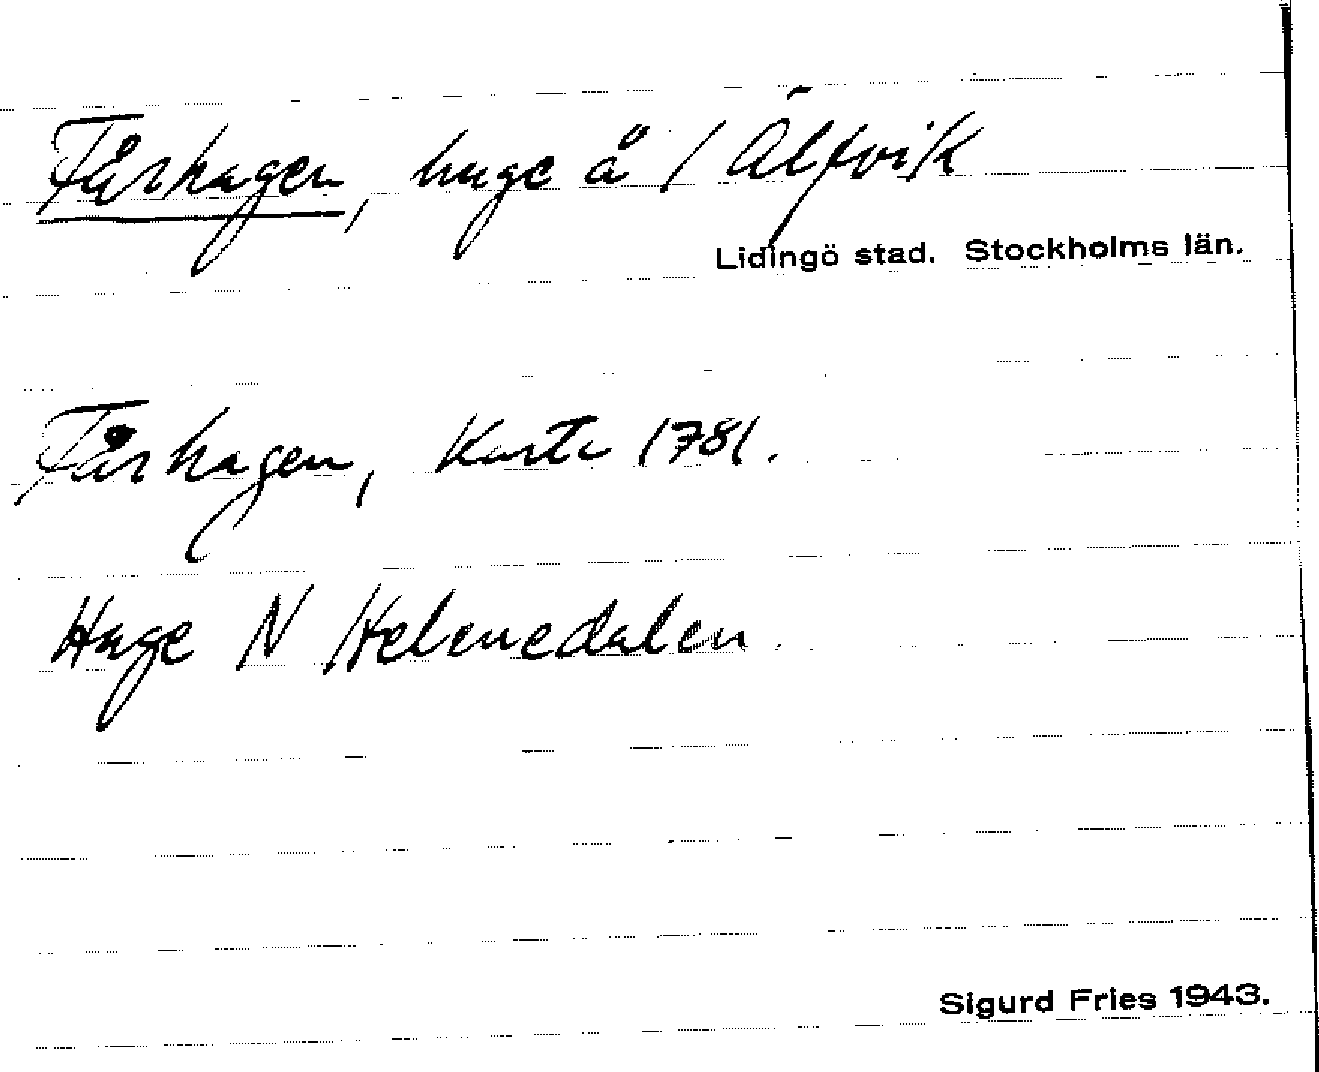 Fårhagen, hage å / Älfvik
Lidingö stad. Stockholms län.
Fårhagen, Karta 1781.
Hage N Helenedalen.
Sigurd Fries 1943.